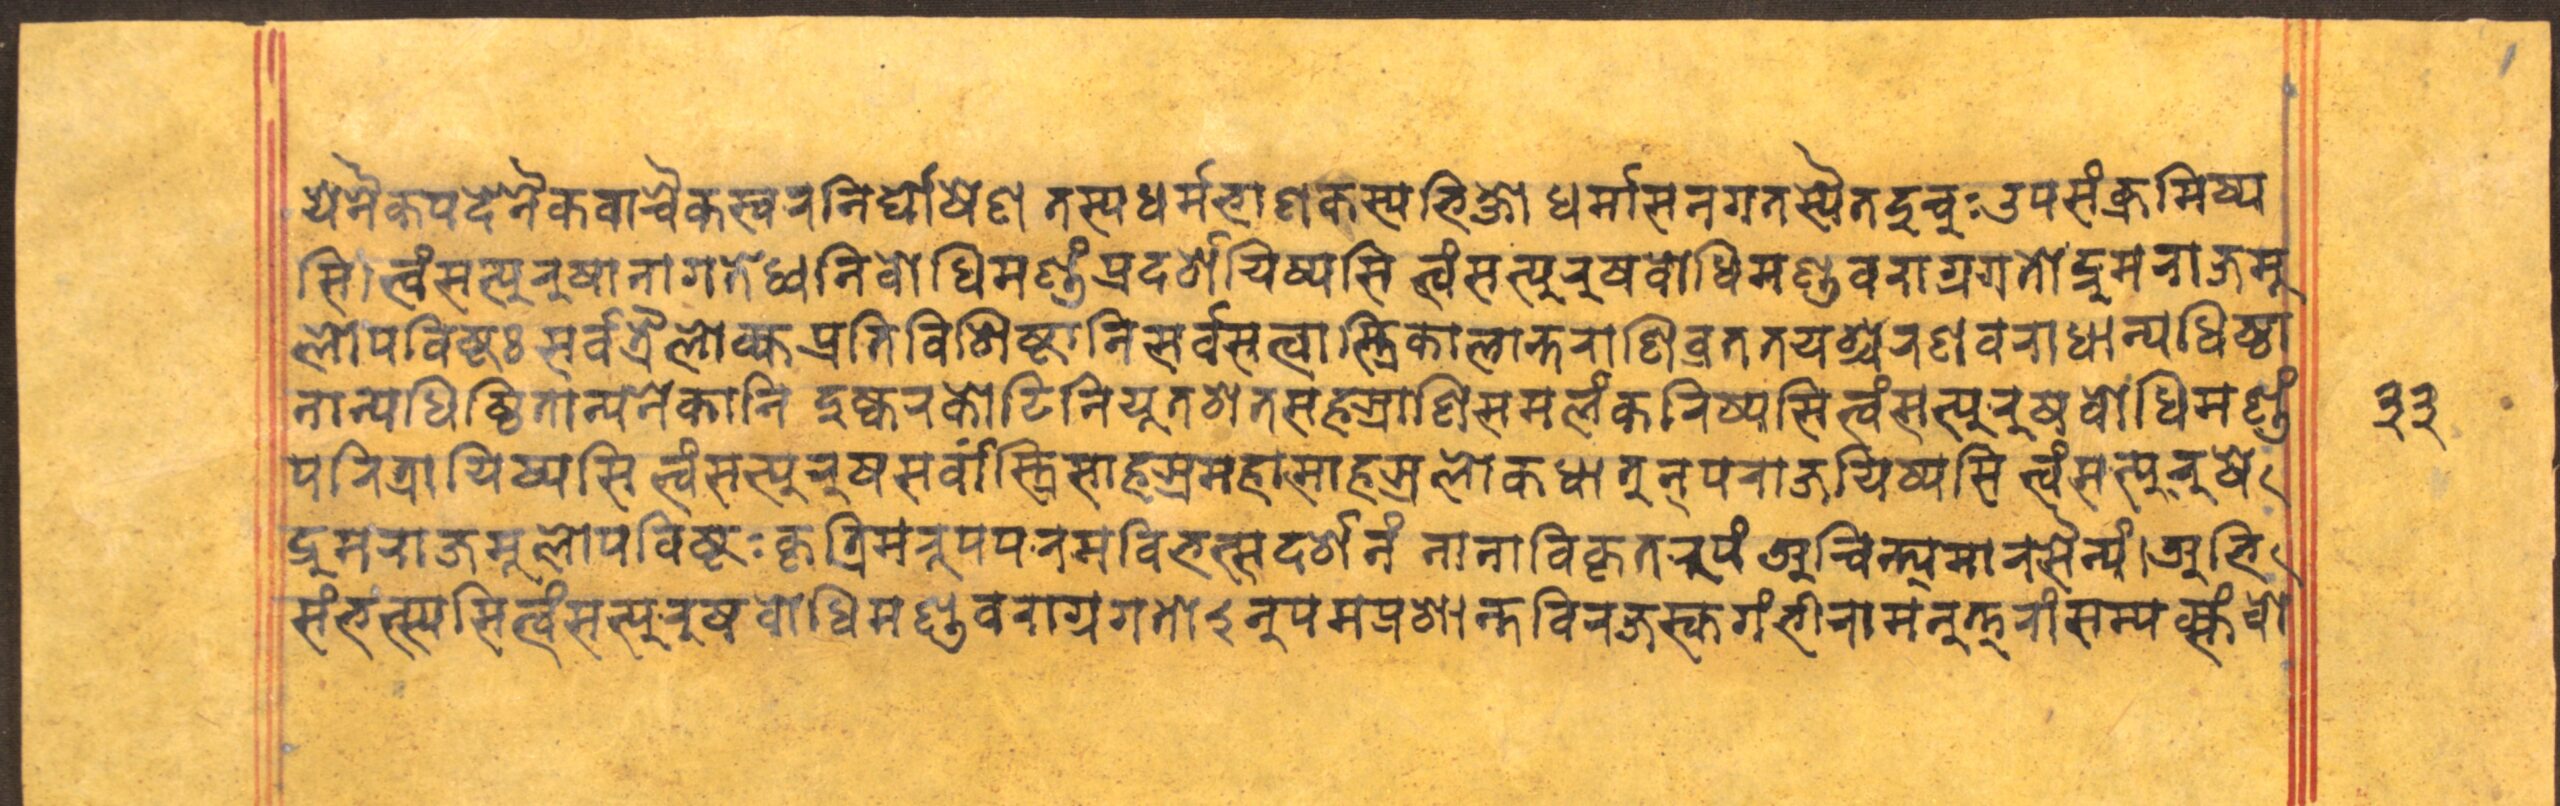 येनैकपदेनैकवाचैकस्वरनिर्घोषेण तस्य धर्मभाणकस्य भिक्षो धर्मासनगतस्यैतदूचुः उपसंक्रमिष्य
सि। त्वंसत्पुरुषानागतेध्वनिबोधिमण्डंप्रदर्शयिष्यसि त्वंसत्पुरुषबोधिमण्डवराग्रगतोद्रुमराजमू
लोपविष्टः सर्वत्रैलोक्यप्रतिविशिष्टानि सर्वसत्वास्त्रिकालान्तराणिव्रततयश्चेरणवराधान्यधिष्ठा
नान्यधिष्ठितान्यनेकानि दुष्करकोटिनियुतशतसहस्राणिसमलंकरिष्यसित्वंसत्पुरुष बोधिमण्डं
परित्रायिष्यसि त्वंसत्पुरुषसर्वांस्त्रिसाहस्रमहासाहस्रलोकधातुन् पराजयिष्यसि त्वंसत्पुरुषे
द्रुमराजमूलोपविष्टः कृत्रिमरूपपरमविभत्सदर्शनं नानाविकृतरूपं अचिन्त्यमारसैन्यं। अभि
संभत्स्यसित्वंसत्पुरुष बोधिमण्डवराग्रगतोऽनुपमप्रशान्तविरजस्कगंभीरामनुत्तरांसम्यक्संबो
३३